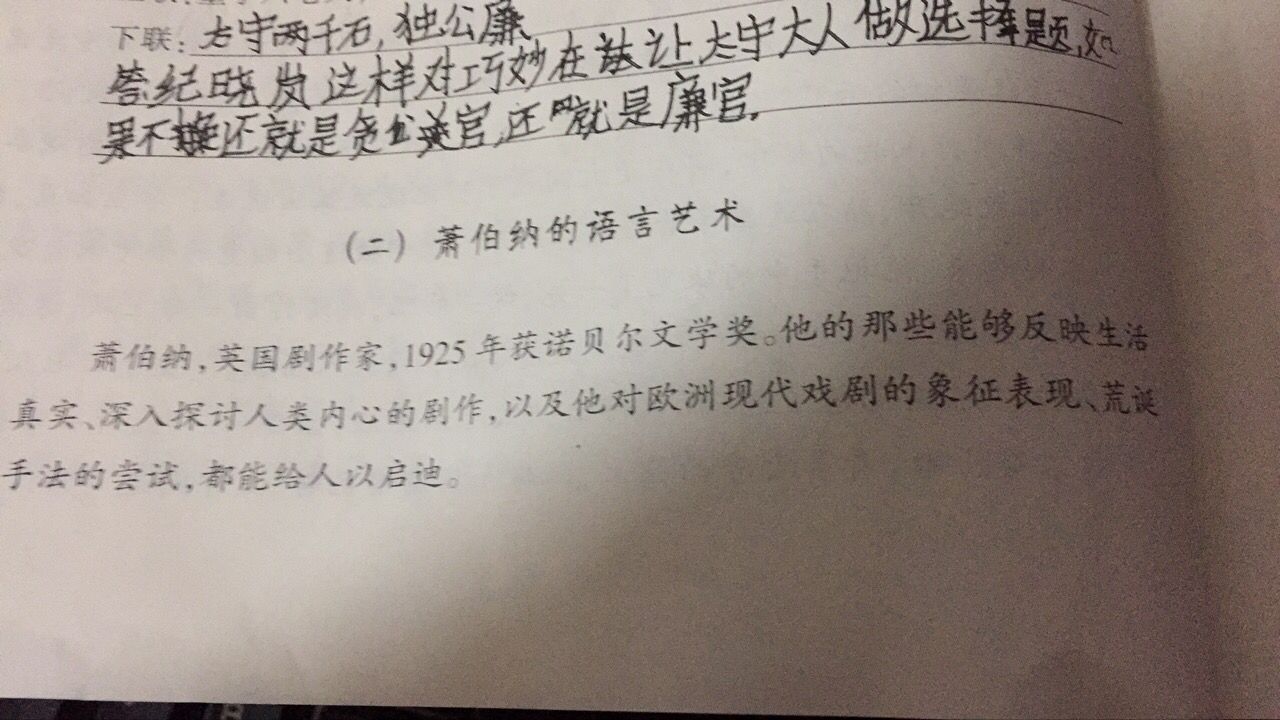 下联：太守两千石，独公廉
答：纪晓岚这样对巧妙在让太守大人做选择题，如
果不还就是贪官，还就是廉官。
（二）萧伯纳的语言艺术
萧伯纳，英国剧作家，1925年获诺贝尔文学奖。他的那些能够反映生活
真实、深入探讨人类内心的剧作，以及他对欧洲现代戏剧的象征表现、荒诞
手法的尝试，都能给人以启迪。